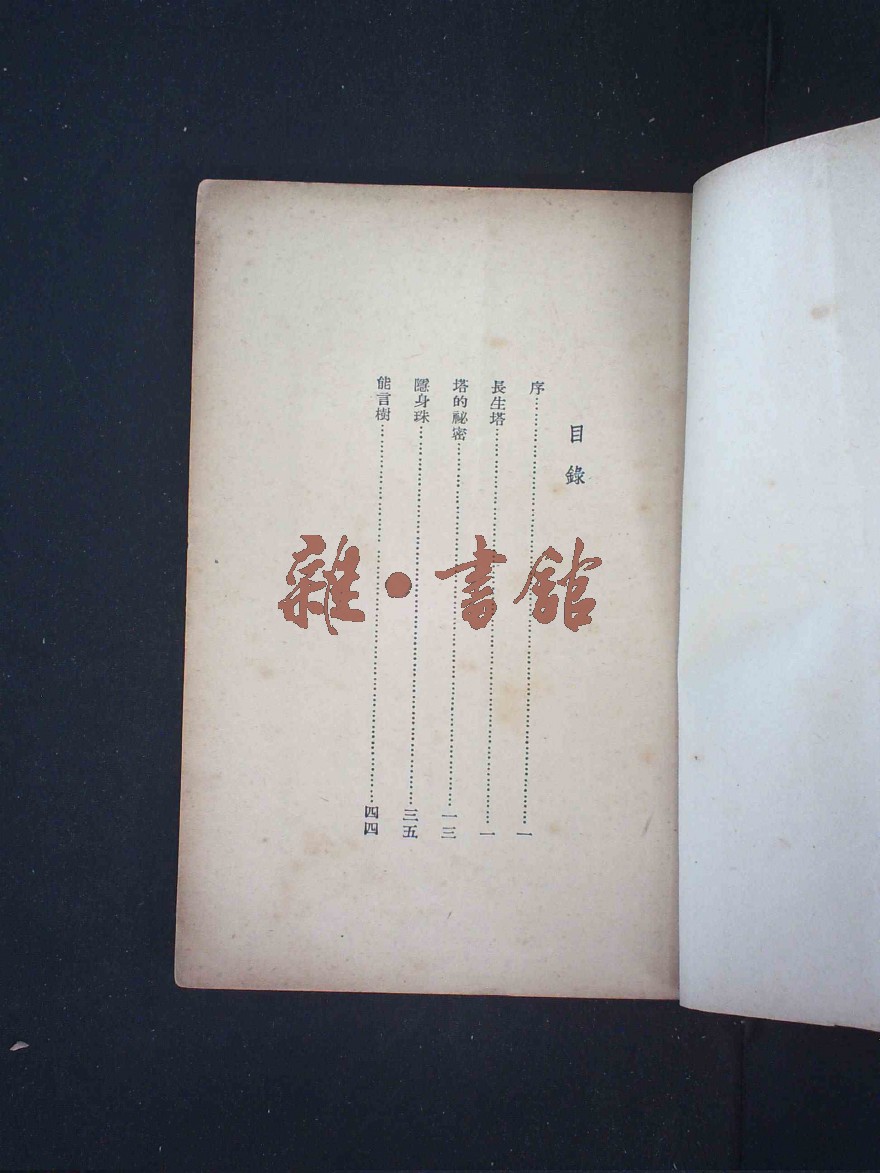 目錄
序……一
長生塔……一
塔的祕密……一三
隱身珠……三五
能言樹……四四
雜·書館